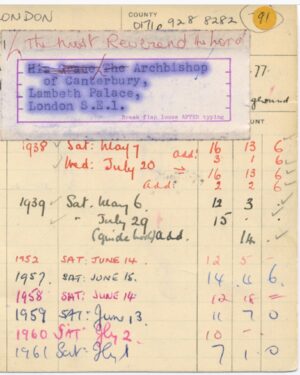 LONDON
COUNTY
0171 928 8282
91
The most Reverend the Lord
His Grace The Archbishop
of Canterbury,
Lambeth Palace,
London S.E.1.
Break flap loose AFTER typing
77
ground
UNT
1938 Sat: May 7 add: 16 13 6
Wed: July 20 3 1 6
16 13 6
add: 2 2 6
1939 Sat. May 6. 12 3 .
" July 29 15 . .
(guide book) add. 14 .
1952 SAT: JUNE 14. 12 5 -
1957. SAT: JUNE 15. 14 11 6
1958 SAT: JUNE 14. 12 18 -
1959 SAT: June 13 11 7 0
1960 SAT July 2. 10 - -
1961 Sat: July 1 7 1 0